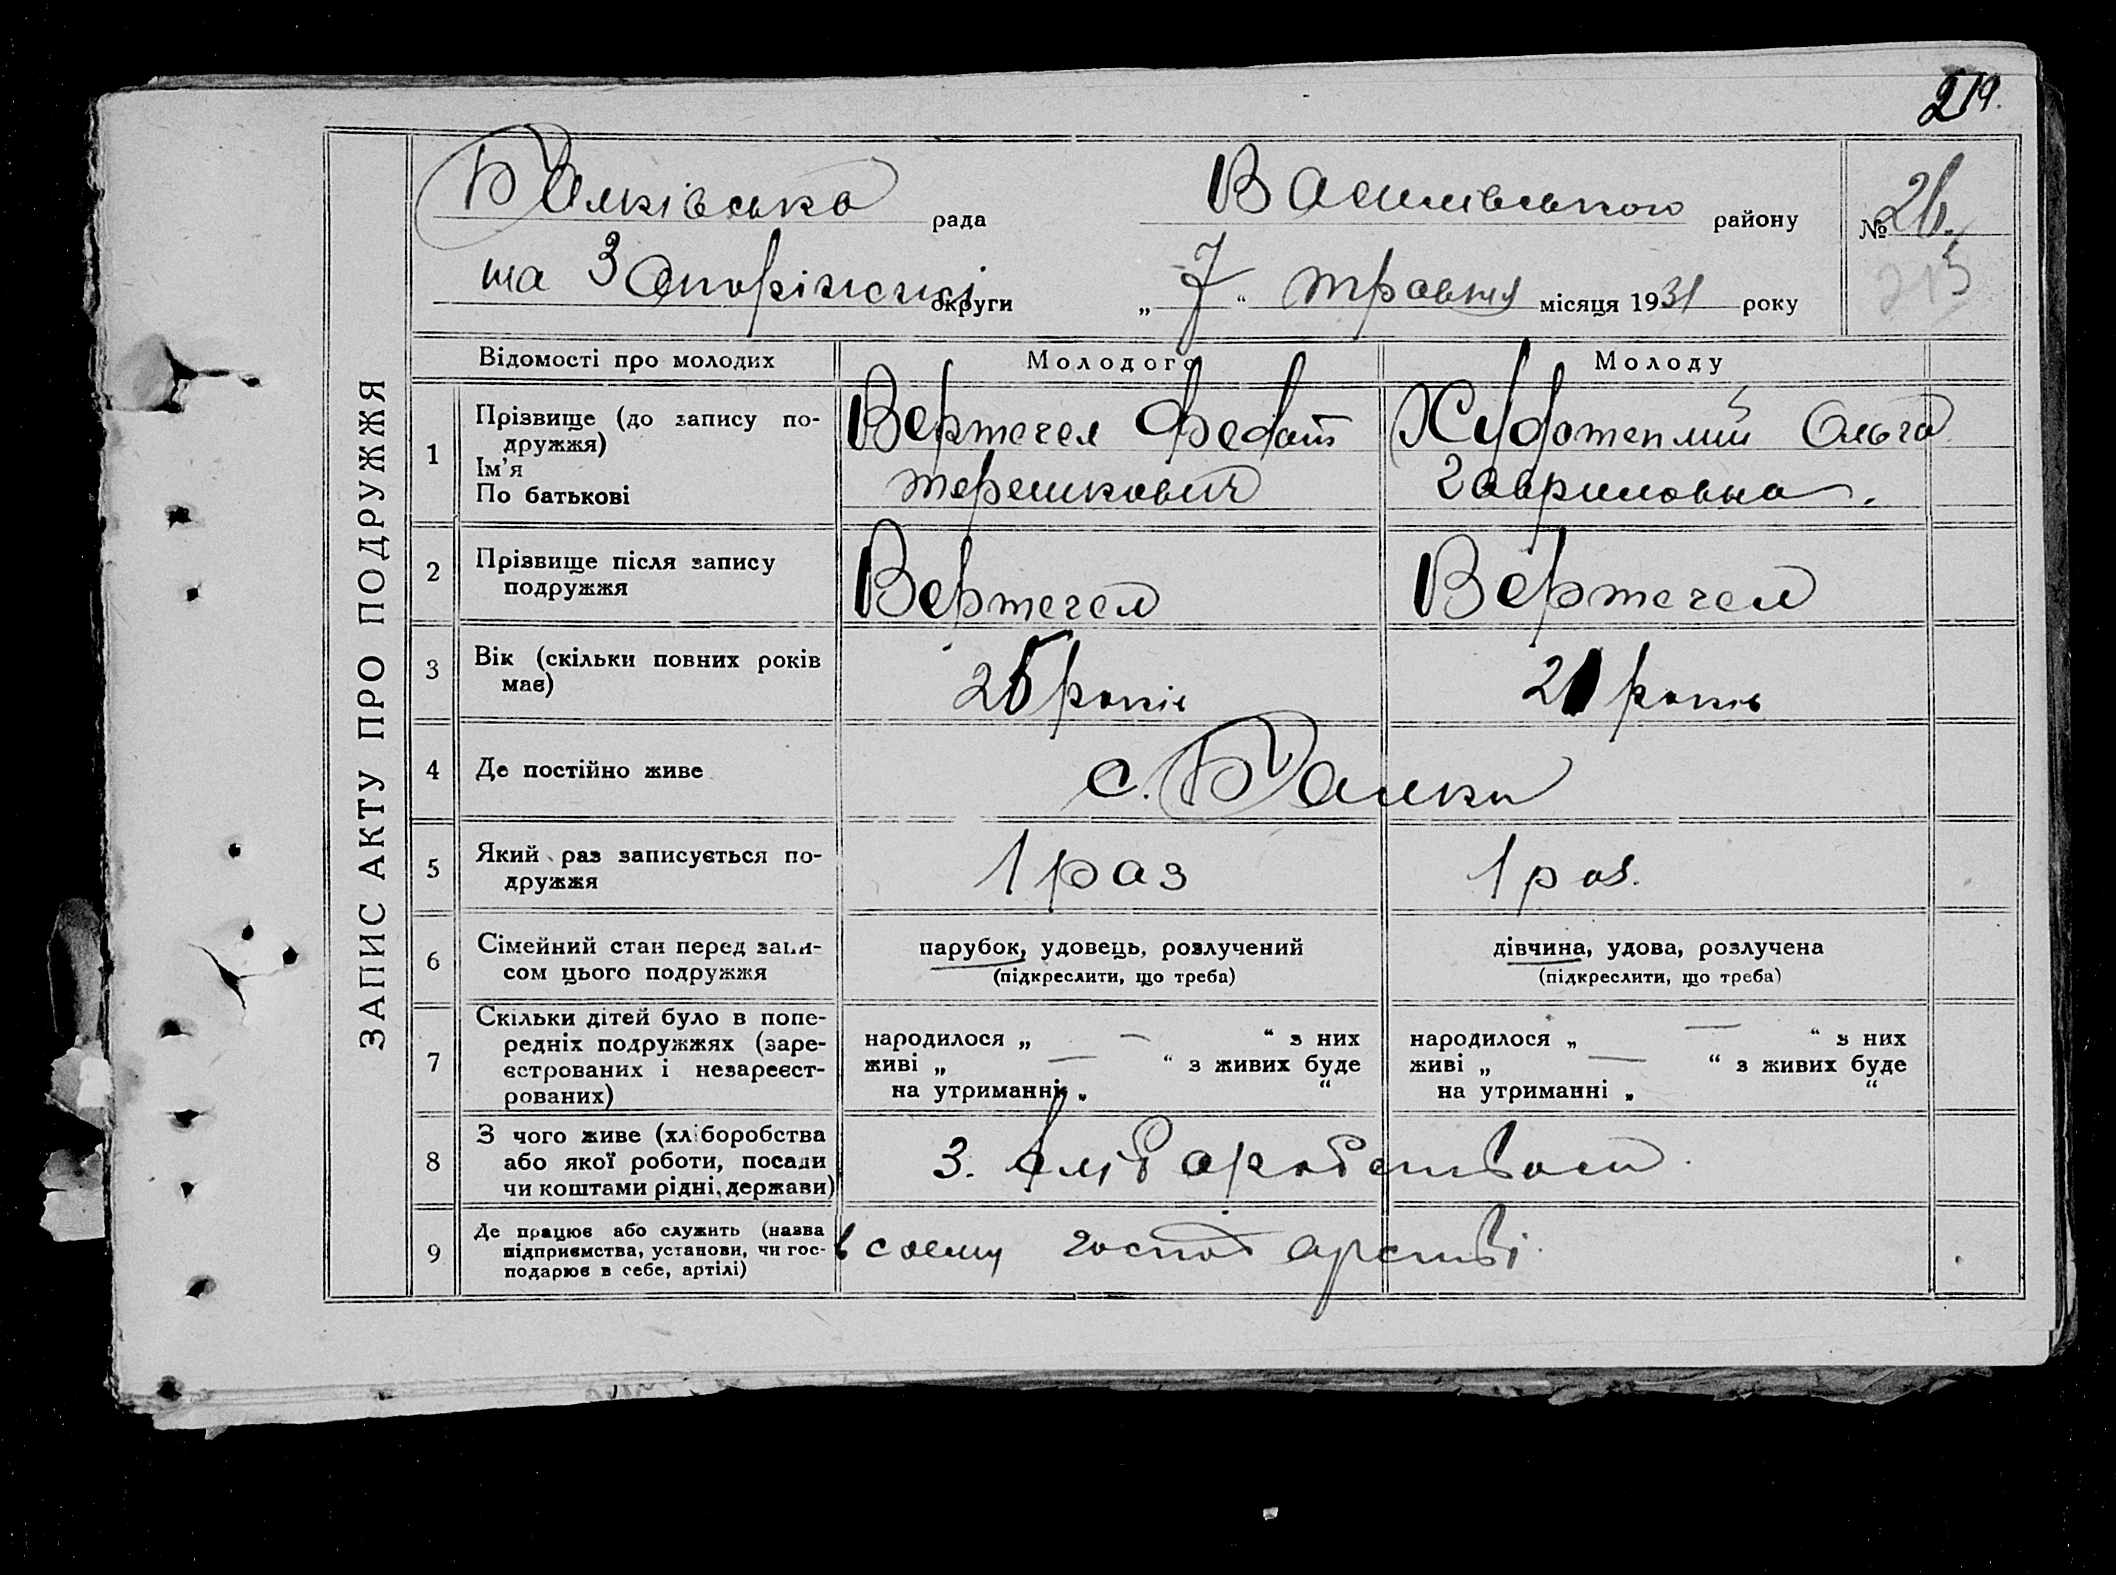 219.
Балківська рада Василівського району №26.
на Запоріжжі округи „7“ травня місяця 1931 року
215
ЗАПИС АКТУ ПРО ПОДРУЖЖЯ
Відомості про молодих Молодого Молоду
1 Прізвище (до запису по-
дружжя)
Ім’я
По батькові
Вертегел Федот
терешкович
Худотеплий Ольга
Гавриловна.
2 Прізвище після запису
подружжя
Вертегел Вертегел
3 Вік (скільки повних років
має)
25 років 21 років
4 Де постійно живе с. Балки
5 Який раз записується по-
дружжя
1 раз 1 раз.
6 Сімейний стан перед запи-
сом цього подружжя
парубок, удовець, розлучений
(підкреслити, що треба)
дівчина, удова, розлучена
(підкреслити, що треба)
7 Скільки дітей було в попе-
редніх подружжях (заре-
єстрованих і незареєст-
рованих)
народилося „ — “ з них
живі „ — “ з живих буде
на утриманні „ “
народилося „ — “ з них
живі „ — “ з живих буде
на утриманні „ “
8 З чого живе (хліборобства
або якої роботи, посади
чи коштами рідні, держави)
З. хліборобством.
9 Де працює або служить (назва
підприємства, установи, чи гос-
подарює в себе, артілі)
в своему господарстві.